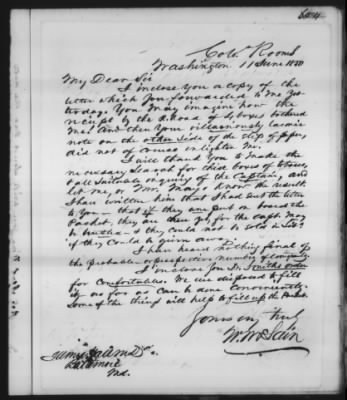 Colⁿ Rooms
Washington 11 June 1850
My Dear Sir
I inclose you a copy of the
letter which you forwarded to me yes-
terday. You may imagine how the
receipt by the R. Road of 4 boxes bothered
me! And then your villainously laconic
note on the other side of the slip of paper,
did not of course enlighten me.
I will thank you to make the
necessary search for these boxes of
& all suitable enquiry of the Captain, and
let me, or Mrs. Mayo know the result.
I have written him that I had sent the letter
to you — that if they are put on board the
Packet, they are then for the capt. may
be & they could not be sold in
if they could be given away.
I have heard nothing final of
the probable or prospective number of
I inclose you Dr. Smith's order
for Comfortables. We are disposed to fill
it, as far as can be done conveniently.
Some of the things will help to fill up the Packet.
Yours very truly
W. McLain
James Hall M.D.
Baltimore
Md.